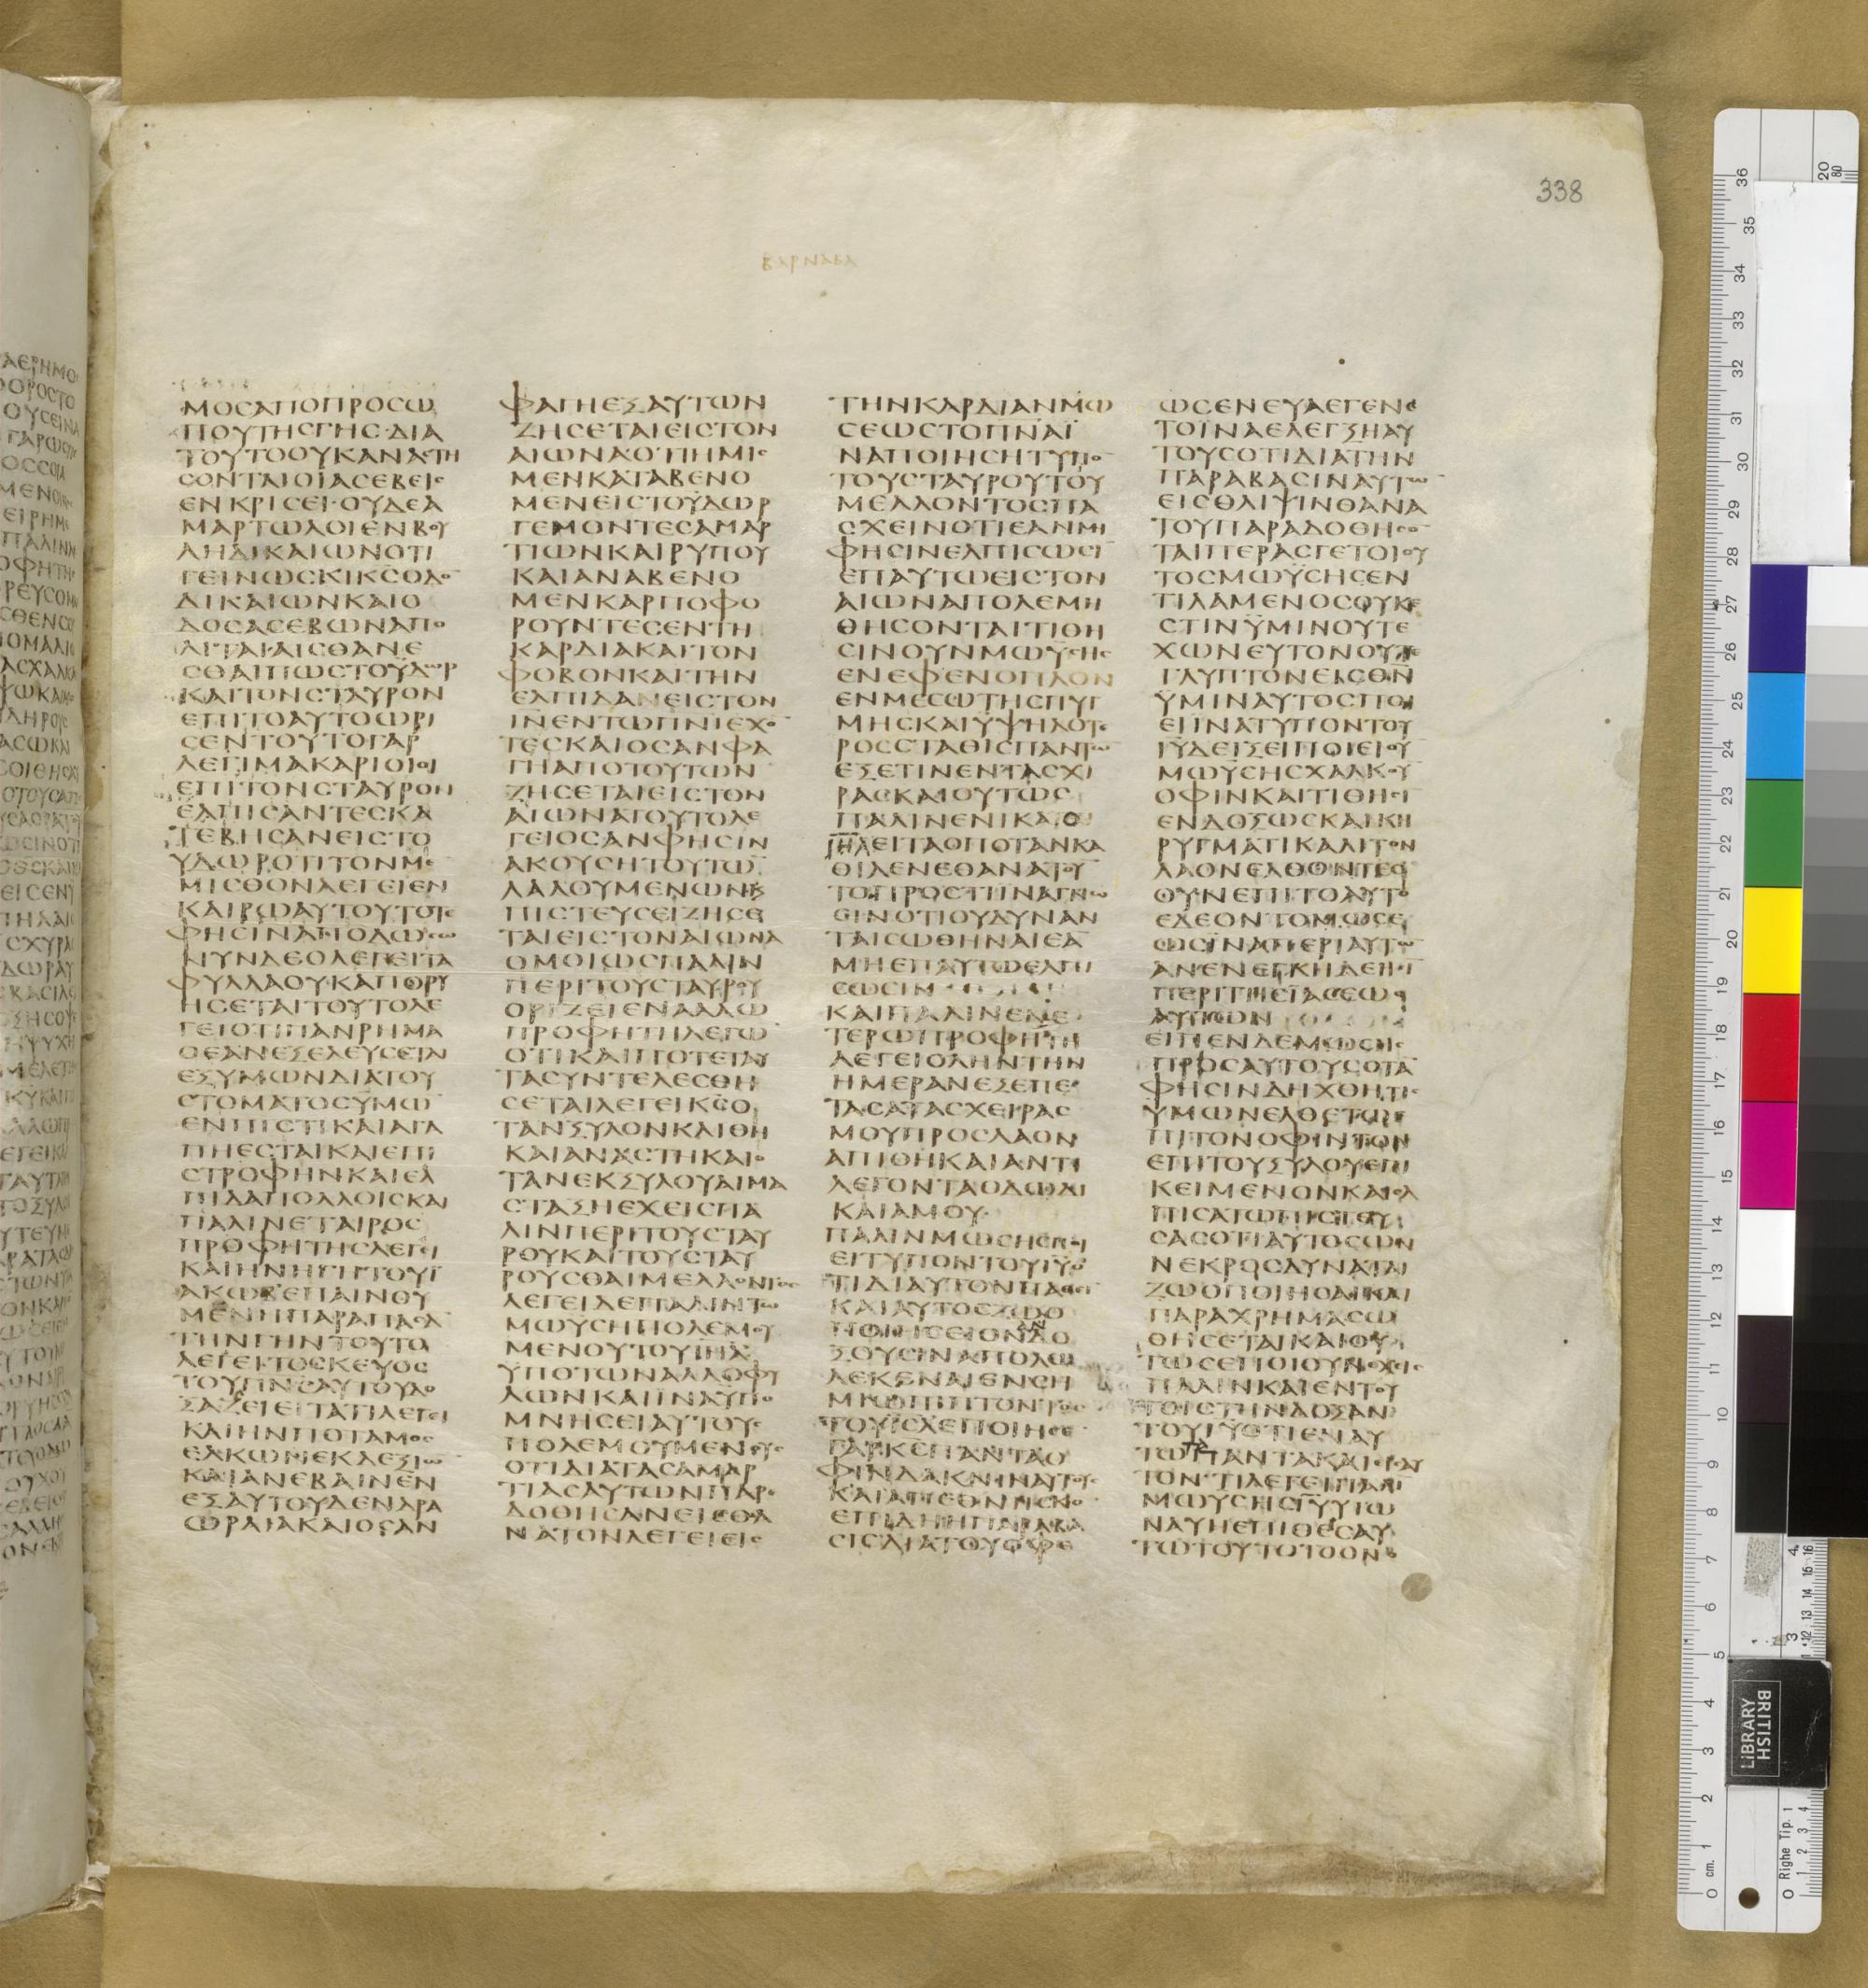 338
ΒΑΡΝΑΒΑ
ΜΟСΑΠΟΠΡΟСΩ
ΠΟΥΤΗСΓΗС·ΔΙΑ
ΤΟΥΤΟΟΥΚΑΝΑСΤΗ
СΟΝΤΑΙΟΙΑСΕΒΕΙС
ΕΝΚΡΙСΕΙ·ΟΥΔΕΑ
ΜΑΡΤΩΛΟΙΕΝΒΟΥ
ΛΗΔΙΚΑΙΩΝΟΤΙ
ΓΕΙΝΩСΚΙΚСΟΔΟ
ΔΙΚΑΙΩΝΚΑΙΟ
ΔΟСΑСΕΒΩΝΑΠΟ
ΛΙΤΑΙ·ΑΙСΘΑΝΕ
СΘΑΙΠΩСΤΟΫΔΩΡ
ΚΑΙΤΟΝСΤΑΥΡΟΝ
ΕΠΙΤΟΑΥΤΟΩΡΙ
СΕΝΤΟΥΤΟΓΑΡ
ΛΕΓΙΜΑΚΑΡΙΟΙΟΙ
ΕΠΙΤΟΝСΤΑΥΡΟΝ
ΕΛΠΙСΑΝΤΕСΚΑ
ΤΕΒΗСΑΝΕΙСΤΟ
ΥΔΩΡΟΤΙΤΟΝΜΕ
ΜΙСΘΟΝΛΕΓΕΙΕΝ
ΚΑΙΡΩΑΥΤΟΥΤΟΤΕ
ΦΗСΙΝΑΠΟΔΩСΩ
ΝΥΝΔΕΟΛΕΓΕΙΤΑ
ΦΥΛΛΑΟΥΚΑΠΟΡΥ
ΗСΕΤΑΙΤΟΥΤΟΛΕ
ΓΕΙΟΤΙΠΑΝΡΗΜΑ
ΟΕΑΝΕΞΕΛΕΥСΕΤΑΙ
ΕΞΥΜΩΝΔΙΑΤΟΥ
СΤΟΜΑΤΟСΥΜΩ
ΕΝΠΙСΤΙΚΑΙΑΓΑ
ΠΗΕСΤΑΙΚΑΙΕΠΙ
СΤΡΟΦΗΝΚΑΙΕΛ
ΠΙΔΑΠΟΛΛΟΙСΚΑΙ
ΠΑΛΙΝΕΤΑΙΡΟС
ΠΡΟΦΗΤΗСΛΕΓΕΙ
ΚΑΙΗΝΗΓΗΤΟΥΙ
ΑΚΩΒΕΠΑΙΝΟΥ
ΜΕΝΗΠΑΡΑΠΑСΑ
ΤΗΝΓΗΝΤΟΥΤΟ
ΛΕΓΕΙΤΟСΚΕΥΟС
ΤΟΥΠΝСΑΥΤΟΥΔΟ
ΞΑΖΕΙΕΙΤΑΤΙΛΕΓΕΙ
ΚΑΙΗΝΠΟΤΑΜΟС
ΕΛΚΩΝΕΚΔΕΞΙΩ
ΚΑΙΑΝΕΒΑΙΝΕΝ
ΕΞΑΥΤΟΥΔΕΝΔΡΑ
ΩΡΑΙΑΚΑΙΟСΑΝ
ΦΑΓΗΕΞΑΥΤΩΝ
ΖΗСΕΤΑΙΕΙСΤΟΝ
ΑΙΩΝΑΟΠΗΜΙС
ΜΕΝΚΑΤΑΒΕΝΟ
ΜΕΝΕΙСΤΟΫΔΩΡ
ΓΕΜΟΝΤΕСΑΜΑΡ
ΤΙΩΝΚΑΙΡΥΠΟΥ
ΚΑΙΑΝΑΒΕΝΟ
ΜΕΝΚΑΡΠΟΦΟ
ΡΟΥΝΤΕСΕΝΤΗ
ΚΑΡΔΙΑΚΑΙΤΟΝ
ΦΟΒΟΝΚΑΙΤΗΝ
ΕΛΠΙΔΑΝΕΙСΤΟΝ
ΙΝΕΝΤΩΠΝΙΕΧΟ
ΤΕСΚΑΙΟСΑΝΦΑ
ΓΗΑΠΟΤΟΥΤΩΝ
ΖΗСΕΤΑΙΕΙСΤΟΝ
ΑΙΩΝΑΤΟΥΤΟΛΕ
ΓΕΙΟСΑΝΦΗСΙΝ
ΑΚΟΥСΗΤΟΥΤΩ
ΛΑΛΟΥΜΕΝΩΝΚ
ΠΙСΤΕΥСΕΙΖΗСΕ
ΤΑΙΕΙСΤΟΝΑΙΩΝΑ
ΟΜΟΙΩСΠΑΛΙΝ
ΠΕΡΙΤΟΥСΤΑΥΡΟΥ
ΟΡΙΖΕΙΕΝΑΛΛΩ
ΠΡΟΦΗΤΗΛΕΓΩ
ΟΤΙΚΑΙΠΟΤΕΤΑΥ
ΤΑСΥΝΤΕΛΕСΘΗ
СΕΤΑΙΛΕΓΕΙΚСΟ
ΤΑΝΞΥΛΟΝΚΛΙΘΗ
ΚΑΙΑΝΑСΤΗΚΑΙΟ
ΤΑΝΕΚΞΥΛΟΥΑΙΜΑ
СΤΑΞΗΕΧΕΙСΠΑ
ΛΙΝΠΕΡΙΤΟΥСΤΑΥ
ΡΟΥΚΑΙΤΟΥСΤΑΥ
ΡΟΥСΘΑΙΜΕΛΛΟΝΤΟС
ΛΕΓΕΙΔΕΠΑΛΙΝΤΩ
ΜΩΥСΗΠΟΛΕΜΟΥ
ΜΕΝΟΥΤΟΥΙΗΛ
ΥΠΟΤΩΝΑΛΛΟΦΥ
ΛΩΝΚΑΙΙΝΑΥΠΟ
ΜΝΗСΕΙΑΥΤΟΥС
ΠΟΛΕΜΟΥΜΕΝΟΥС
ΟΤΙΔΙΑΤΑСΑΜΑΡ
ΤΙΑСΑΥΤΩΝΠΑΡΕ
ΔΟΘΗСΑΝΕΙСΘΑ
ΝΑΤΟΝΛΕΓΕΙΕΙС
ΤΗΝΚΑΡΔΙΑΝΜΩ
СΕΩСΤΟΠΝΑΪ
ΝΑΠΟΙΗСΗΤΥΠΟ
ΤΟΥСΤΑΥΡΟΥΤΟΥ
ΜΕΛΛΟΝΤΟСΠΑ
СΧΕΙΝΟΤΙΕΑΝΜΗ
ΦΗСΙΝΕΛΠΙСΩСΙ
ΕΠΑΥΤΩΕΙСΤΟΝ
ΑΙΩΝΑΠΟΛΕΜΗ
ΘΗСΟΝΤΑΙΤΙΘΗ
СΙΝΟΥΝΜΩΫСΗС
ΕΝΕΦΕΝΟΠΛΟΝ
ΕΝΜΕСΩΤΗСΠΥΓ
ΜΗСΚΑΙΫΨΗΛΟΤΕ
ΡΟССΤΑΘΙСΠΑΝΤΩ
ΕΞΕΤΙΝΕΝΤΑСΧΙ
ΡΑСΚΑΙΟΥΤΩС
ΠΑΛΙΝΕΝΙΚΑΟ
ΙΗΛΕΙΤΑΟΠΟΤΑΝΚΑ
ΘΙΛΕΝΕΘΑΝΑΤΟΥ
ΤΟΠΡΟСΤΙΙΝΑΓΝΩ
СΙΝΟΤΙΟΥΔΥΝΑΝ
ΤΑΙСΩΘΗΝΑΙΕΑ
ΜΗΕΠΑΥΤΩΕΛΠΙ
СΩСΙΝ
ΚΑΙΠΑΛΙΝΕΝΕ
ΤΕΡΩΠΡΟΦΗΤΗ
ΛΕΓΕΙΟΛΗΝΤΗΝ
ΗΜΕΡΑΝΕΞΕΠΕ
ΤΑСΑΤΑСΧΕΙΡΑС
ΜΟΥΠΡΟСΛΑΟΝ
ΑΠΙΘΗΚΑΙΑΝΤΙ
ΛΕΓΟΝΤΑΟΔΩΔΙ
ΚΑΙΑΜΟΥ
ΠΑΛΙΝΜΩСΗСΠΟΙ
ΕΙΤΥΠΟΝΤΟΥΙΥΟ
ΤΙΔΙΑΥΤΟΝΠΑΘΕΙ
ΚΑΙΑΥΤΟСΖΩΟ
ΠΟΙΗСΕΙΟΝΔΟ
ΞΟΥСΙΝΑΠΟΛΩ
ΛΕΚΕΝΑΙΕΝСΗ
ΜΙΩΠΙΠΤΟΝΤΟС
ΤΟΥΙСΛΕΠΟΙΗСΕ
ΓΑΡΚСΠΑΝΤΑΟ
ΦΙΝΔΑΚΝΙΝΑΥΤΟΥС
ΚΑΙΑΠΕΘΝΗСΚΟ
ΕΠΙΔΗΗΠΑΡΑΒΑ
СΙСΔΙΑΤΟΥΟΦΕ
ΩСΕΝΕΥΑΕΓΕΝΕ
ΤΟΪΝΑΕΛΕΓΞΗΑΥ
ΤΟΥСΟΤΙΔΙΑΤΗΝ
ΠΑΡΑΒΑСΙΝΑΥΤΩ
ΕΙСΘΛΙΨΙΝΘΑΝΑ
ΤΟΥΠΑΡΑΔΟΘΗСΟ
ΤΑΙΠΕΡΑСΓΕΤΟΙΟΥ
ΤΟСΜΩΫСΗСΕΝ
ΤΙΛΑΜΕΝΟСΟΥΚΕ
СΤΙΝΫΜΙΝΟΥΤΕ
ΧΩΝΕΥΤΟΝΟΥΤΕ
ΓΛΥΠΤΟΝΕΙСΘΝ
ΫΜΙΝΑΥΤΟСΠΟΙ
ΕΙΙΝΑΤΥΠΟΝΤΟΥ
ΙΥΔΕΙΞΕΙΠΟΙΕΙΟΥ
ΜΩΫСΗСΧΑΛΚΟΥ
ΟΦΙΝΚΑΙΤΙΘΗСΙ
ΕΝΔΟΞΩСΚΑΙΚΗ
ΡΥΓΜΑΤΙΚΑΛΙΤΟΝ
ΛΑΟΝΕΛΘΟΝΤΕС
ΟΥΝΕΠΙΤΟΑΥΤΟ
ΕΔΕΟΝΤΟΜΩСΕ
ΩСΙΝΑΠΕΡΙΑΥΤΩ
ΑΝΕΝΕΓΚΗΔΕΗСΙ
ΠΕΡΙΤΗСΙΑСΕΩС
ΑΥΤΩΝ
ΕΙΠΕΝΔΕΜΩСΗС
ΠΡΟСΑΥΤΟΥСΟΤΑ
ΦΗСΙΝΔΗΧΘΗΤΙС
ΥΜΩΝΕΛΘΕΤΩΕ
ΠΙΤΟΝΟΦΙΝΤΟΝ
ΕΠΙΤΟΥΞΥΛΟΥΕΠΙ
ΚΕΙΜΕΝΟΝΚΑΙΕΛ
ΠΙСΑΤΩΠΙСΤΕΥ
СΑСΟΤΙΑΥΤΟСΩΝ
ΝΕΚΡΟСΔΥΝΑΤΑΙ
ΖΩΟΠΟΙΗСΑΙΚΑΙ
ΠΑΡΑΧΡΗΜΑСΩ
ΘΗСΕΤΑΙΚΑΙΟΥ
ΤΩСΕΠΟΙΟΥΝΕΧΙС
ΠΑΛΙΝΚΑΙΕΝΤΟΥ
ΤΟΙСΤΗΝΔΟΞΑΝ
ΤΟΥΙΥΟΤΙΕΝΑΥ
ΤΩΠΑΝΤΑΚΑΙΕΙСΑΥ
ΤΟΝ·ΤΙΛΕΓΕΙΠΑΛΙ
ΜΩΥСΗСΙΥΥΙΩ
ΝΑΥΗΕΠΙΘΕΙСΑΥ
ΤΩΤΟΥΤΟΤΟΟΝΟ